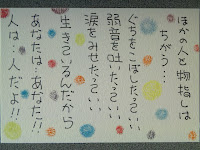 ほかの人と物指しは
ちがう…
ぐちをこぼしたっていい
弱音を吐いたっていい
涙をみせたっていい
生きているんだから
あなたは…あなた!!
人は…人だよ!!